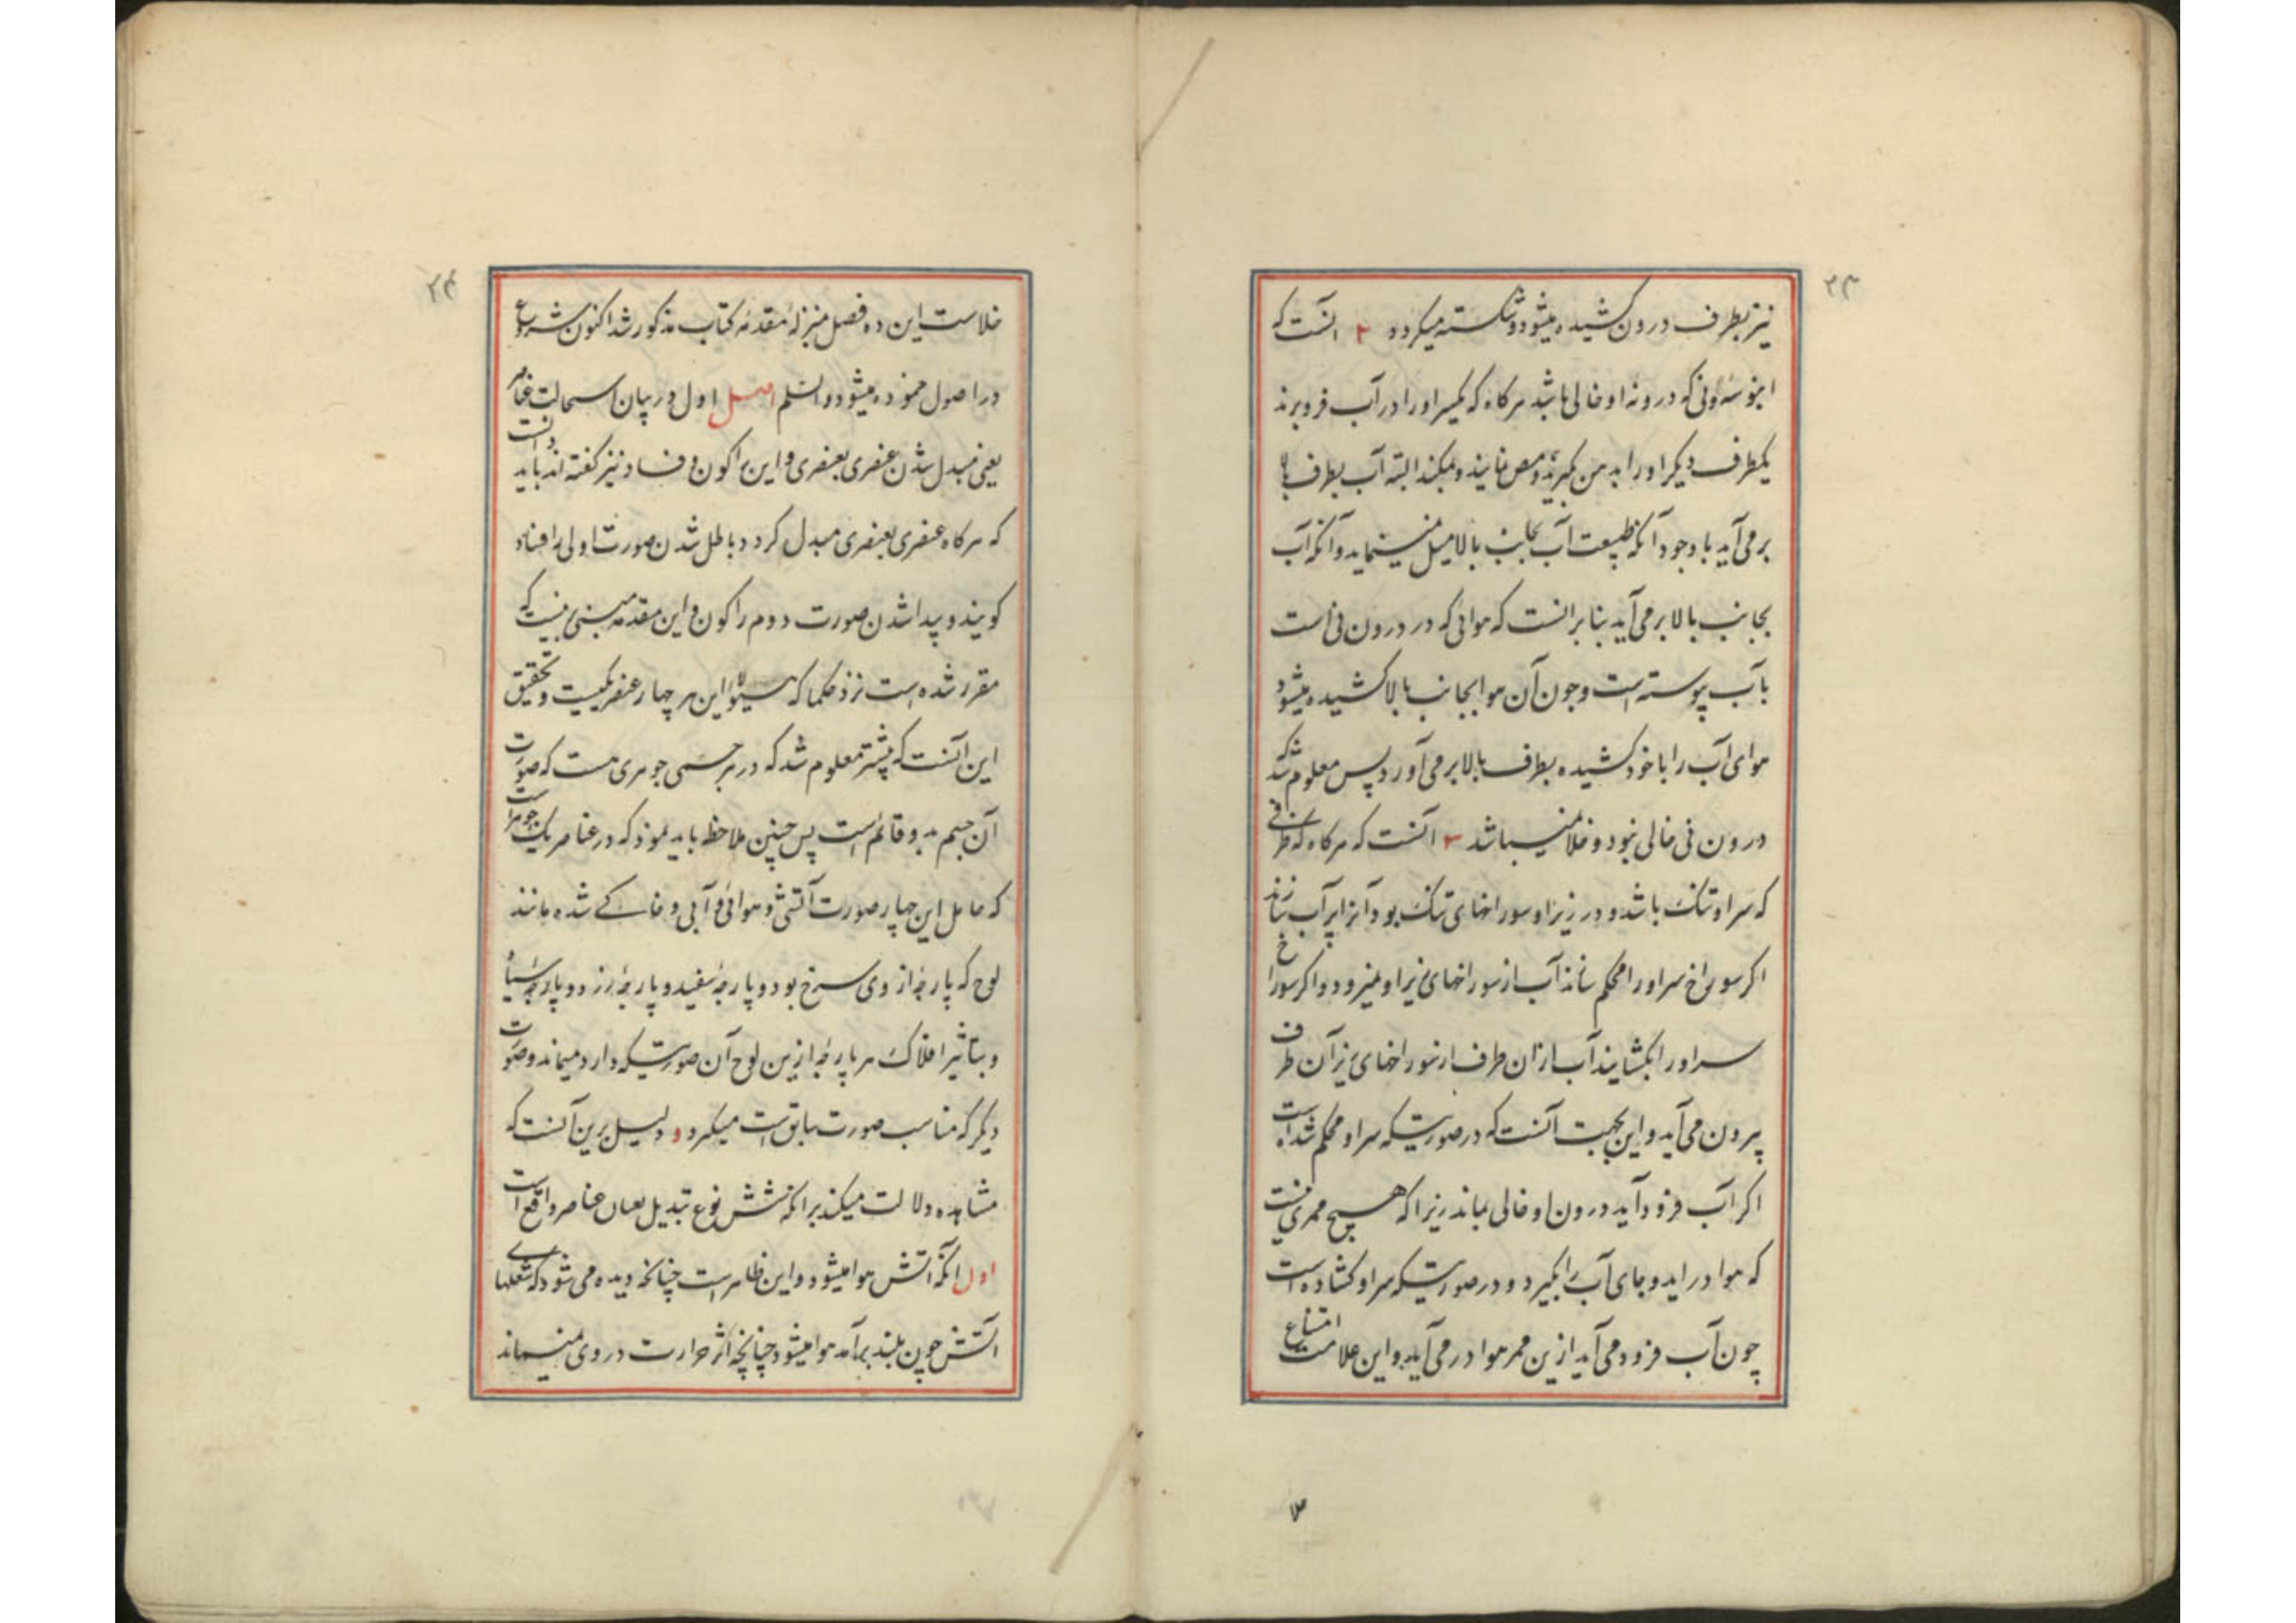 ۲۳
نیز بطرف درون کشیده میشود و شکسته میکردد ۲ آنست که
انبوبه نی که درونه او خالی باشد هرکاه که یکسر او را در آب فرو برند
یکطرف دیکر او را بدهن کیرند و مص نمایند و بمکند البته آب بطرف بالا
بر می آید با وجود آنکه طبیعت آب بجانب بالا میل نمینماید و آنکه آب
بجانب بالا بر می آید بنا بر انست که هوائی که در درون نی است
بآب پیوسته است و چون آن هوا بجانب بالا کشیده میشود
هوای آب را با خود کشیده بطرف بالا بر می آورد پس معلوم شد که
درون نی خالی نبود و خلا نمیباشد ۳ آنست که هرکاه که ظرفی
که سر او تنک باشد و در زیر او سوراخهای تنک بود آنرا پر آب سازند
اکر سوراخ سر او را محکم سازند آب از سوراخهای زیر او نمیرود و اکر سوراخ
سر او را بکشایند آب ازان طرف از سوراخهای زیر آن طرف
بیرون می آید و این بجهت آنست که در صورتیکه سر او محکم شده است
اکر آب فرود آید درون او خالی بماند زیرا که هیچ ممری نیست
که هوا در اید و جای آب را بکیرد و در صورتیکه سر او کشاده است
چون آب فرود می آید ازین ممر هوا در می آید و این علامت امتناع
۳
۲۴
خلاست این ده فصل بمنزلهٔ مقدمهٔ کتاب مذکور شد اکنون شروع
در اصول نموده میشود والسلم اصل اول در بیان استحالت عناصر
یعنی مبدل شدن عنصری بعنصری و این را کون و فساد نیز کفته اند باید دانست
که هرکاه عنصری بعنصری مبدل کردد باطل شدن صورت اولی را فساد
کویند و پیدا شدن صورت دوم را کون و این مقدمه مبنی است که
مقرر شده است نزد حکما که هیولای این هر چهار عنصر یکیست و تحقیق
این آنست که پیشتر معلوم شد که در هر جسمی جوهری هست که صورت
آن جسم بدو قائم است پس چنین ملاحظه باید نمود که در عناصر یک جوهر است
که حامل این چهار صورت آتشی و هوائی و آبی و خاکے شده مانند
لوح که پارچهٔ از وی سرخ بود و پارچهٔ سفید و پارچهٔ زرد و پارچهٔ سیاه
و بتاثیر افلاک هر پارچهٔ ازین لوح آن صورتیکه دارد میماند و صورت
دیکر که مناسب صورت سابق است میکیرد و دلیل برین آنست که
مشاهده دلالت میکند برانکه شش نوع تبدیل میان عناصر واقع است
اول آنکه آتش هوا میشود و این ظاهر است چنانکه دیده می شود که شعلهای
آتش چون بلند برآمد هوا میشود چنانچه اثر حرارت در وی نمیماند